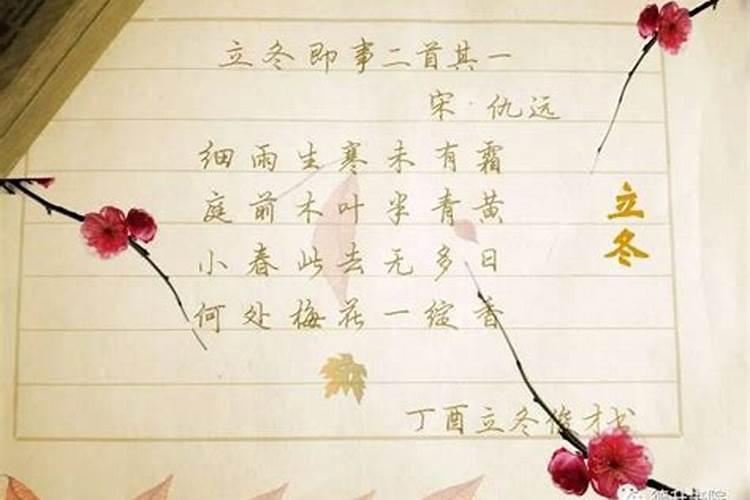 立冬即事二首其一
宋·仇远
细雨生寒未有霜
庭前木叶半青黄
小春此去无多日
何处梅花一绽香
立冬
丁酉立冬俊才书